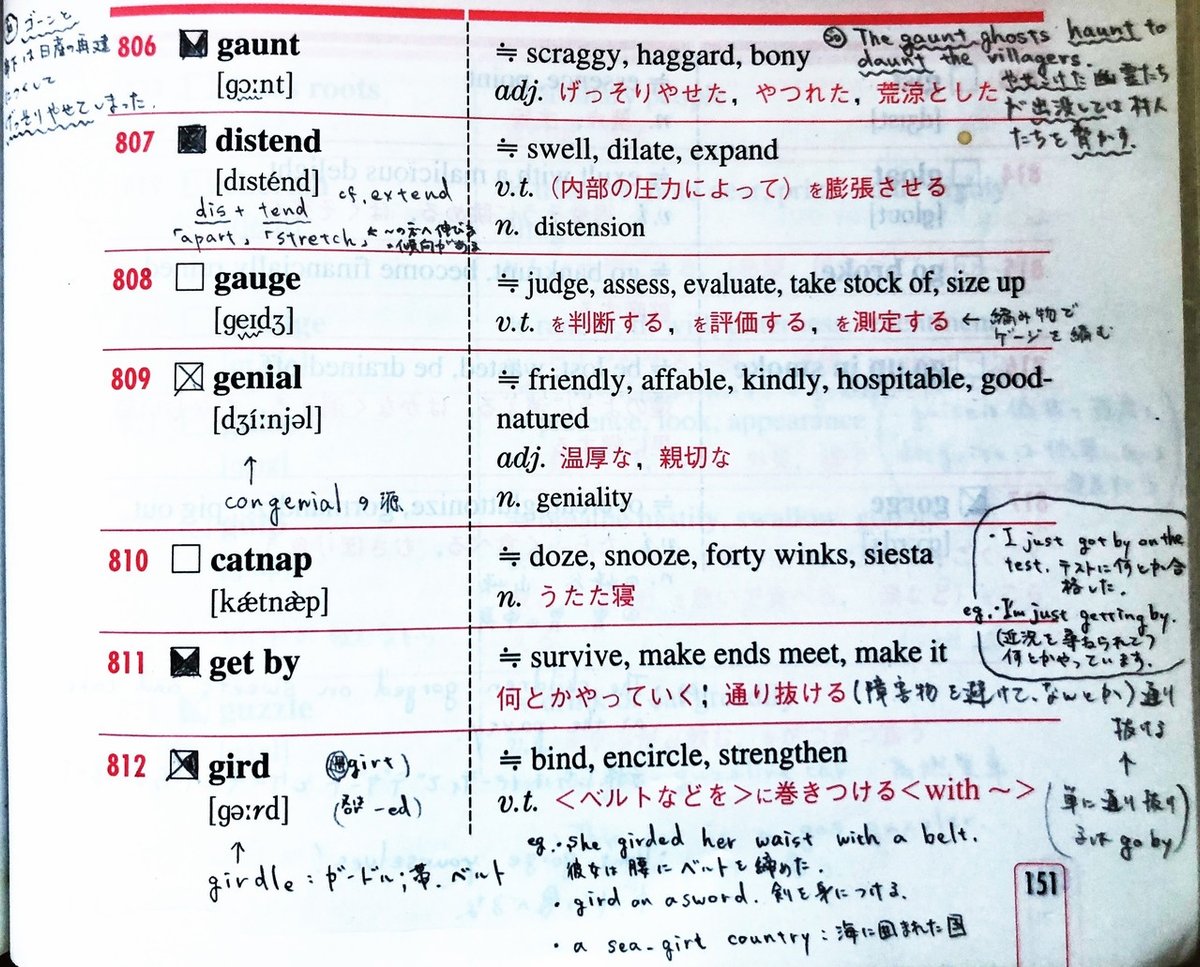 ゴーンと
は日産の再建
げっそりやせてしまった.
806 gaunt
[gɔːnt]
≒ scraggy, haggard, bony
adj. げっそりやせた，やつれた，荒涼とした
The gaunt ghosts haunt to
daunt the villagers.
やせこけた幽霊たち
が出没しては村人
たちを脅かす.
807 distend
[dɪsténd] cf. extend
dis + tend
「apart」「stretch」
≒ swell, dilate, expand
v.t. （内部の圧力によって）を膨張させる
n. distension
808 gauge
[geɪdʒ]
≒ judge, assess, evaluate, take stock of, size up
v.t. を判断する，を評価する，を測定する ← 編み物で
ゲージを編む
809 genial
[dʒíːnjəl]
↑
congenial の源
≒ friendly, affable, kindly, hospitable, good-
natured
adj. 温厚な，親切な
n. geniality
810 catnap
[kǽtnæ̀p]
≒ doze, snooze, forty winks, siesta
n. うたた寝
・I just got by on the
test. テストに何とか合
格した.
eg.・I'm just getting by.
(近況を尋ねられて)
何とかやっています.
811 get by
≒ survive, make ends meet, make it
何とかやっていく；通り抜ける(障害物を避けて、なんとか)通り
抜ける
↑
(単に通り抜け
るは go by)
812 gird (girt)
[gəːrd] (-ed)
↑
girdle : ガードル；帯．ベルト
≒ bind, encircle, strengthen
v.t. ＜ベルトなどを＞に巻きつける＜with ～＞
eg.・she girded her waist with a belt.
彼女は腰にベルトを締めた.
・gird on a sword. 剣を身につける.
・a sea-girt country : 海に囲まれた国
151